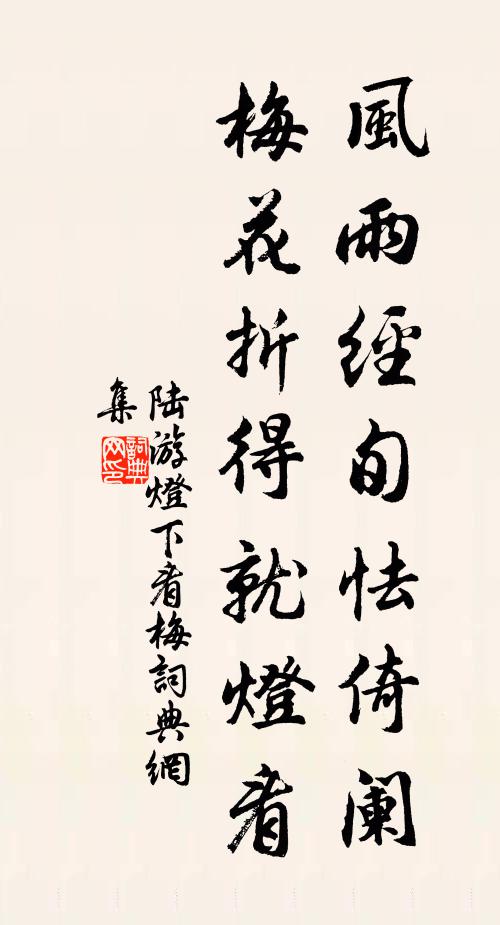 風雨經旬怯倚阑
梅花折得就燈看
陆游燈下看梅詞典網
集
詞典网印